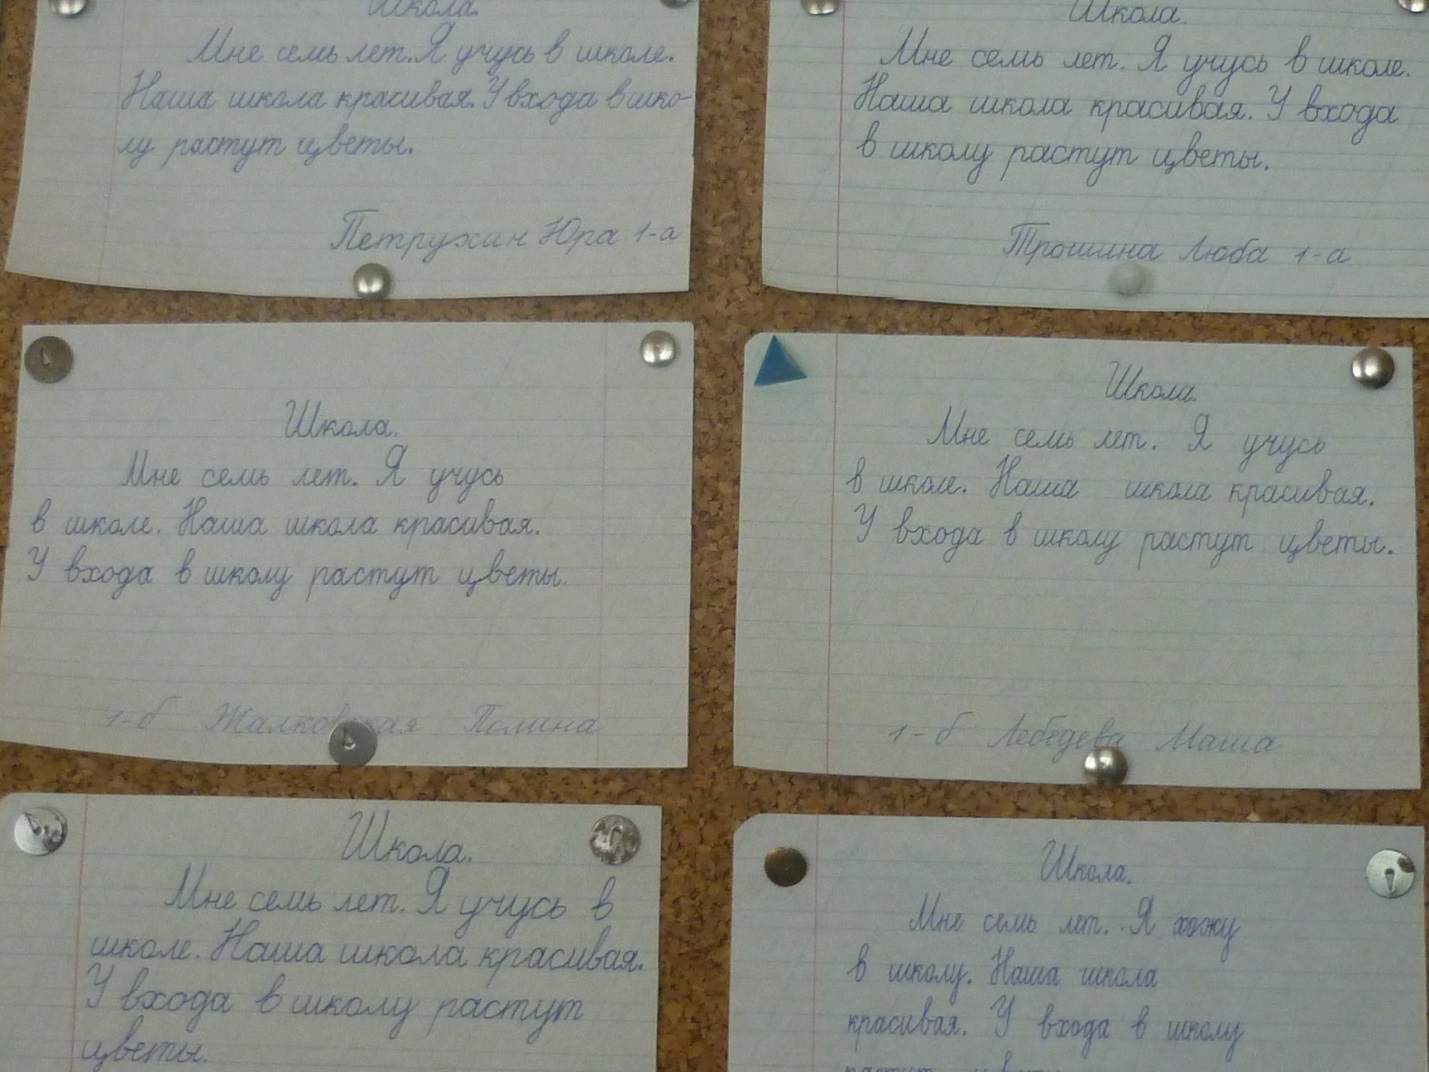 Школа.
Мне семь лет. Я учусь в школе.
Наша школа красивая. У входа в шко-
лу растут цветы.
Петрухин Юра 1-а
Школа.
Мне семь лет. Я учусь в школе.
Наша школа красивая. У входа
в школу растут цветы.
Трошина Люба 1-а
Школа.
Мне семь лет. Я учусь
в школе. Наша школа красивая.
У входа в школу растут цветы.
1-б Полина
Школа.
Мне семь лет. Я учусь
в школе. Наша школа красивая.
У входа в школу растут цветы.
1-б Лебедева Маша
Школа.
Мне семь лет. Я учусь в
школе. Наша школа красивая.
У входа в школу растут
цветы.
Школа.
Мне семь лет. Я хожу
в школу. Наша школа
красивая. У входа в школу
растут цветы